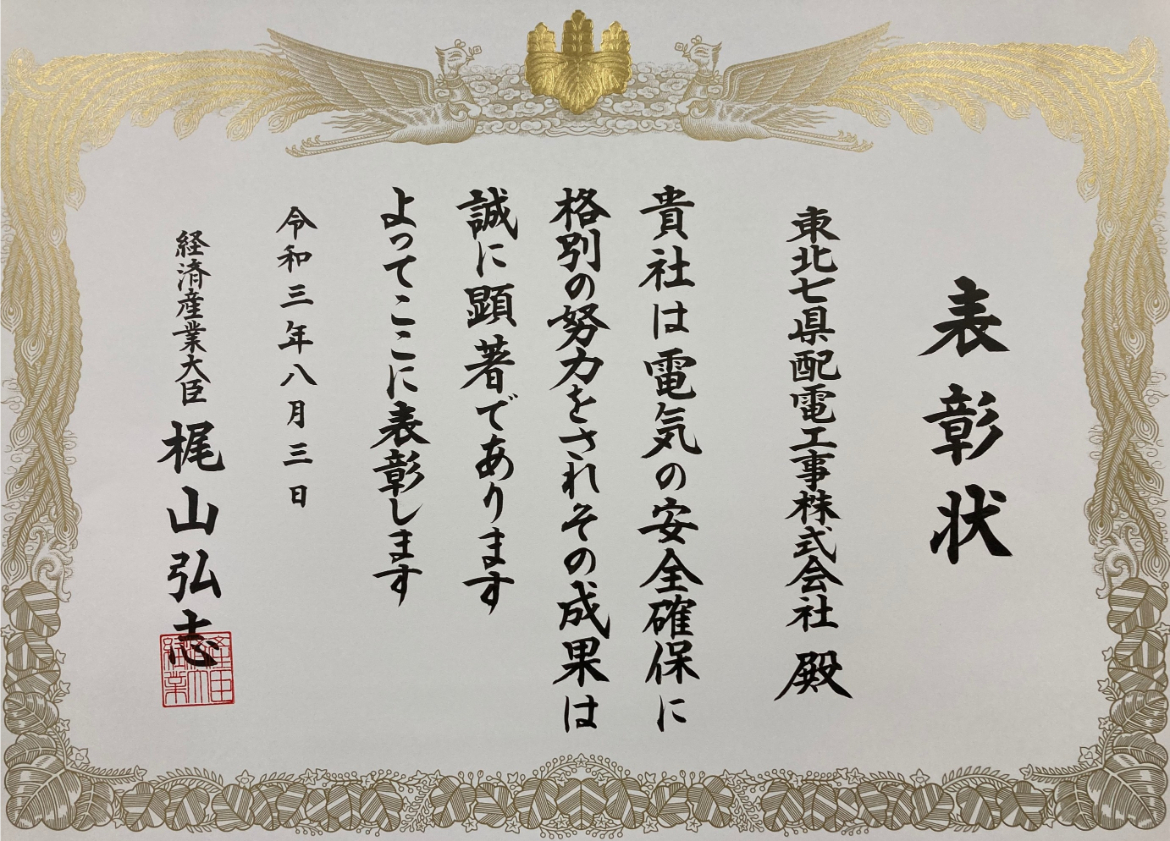 表彰状
東北七県配電工事株式会社 殿
貴社は電気の安全確保に
格別の努力をされその成果は
誠に顕著であります
よってここに表彰します
令和三年八月三日
経済産業大臣 梶山弘志